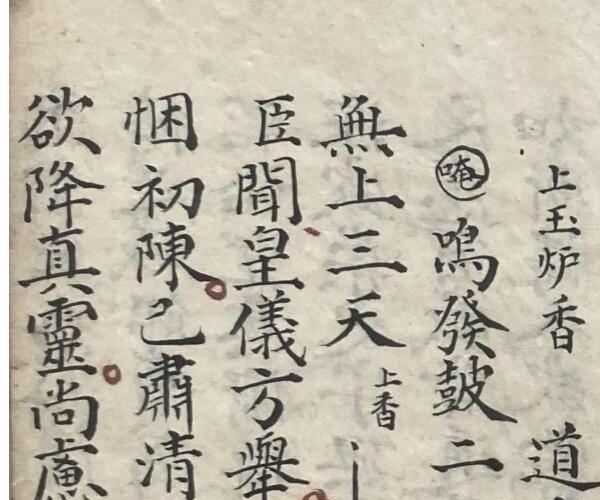 上玉炉香 道
唵 鳴發鼓二
無上三天 上香
臣聞皇儀方舉
悃初陳已肅清
欲降真靈尚慮